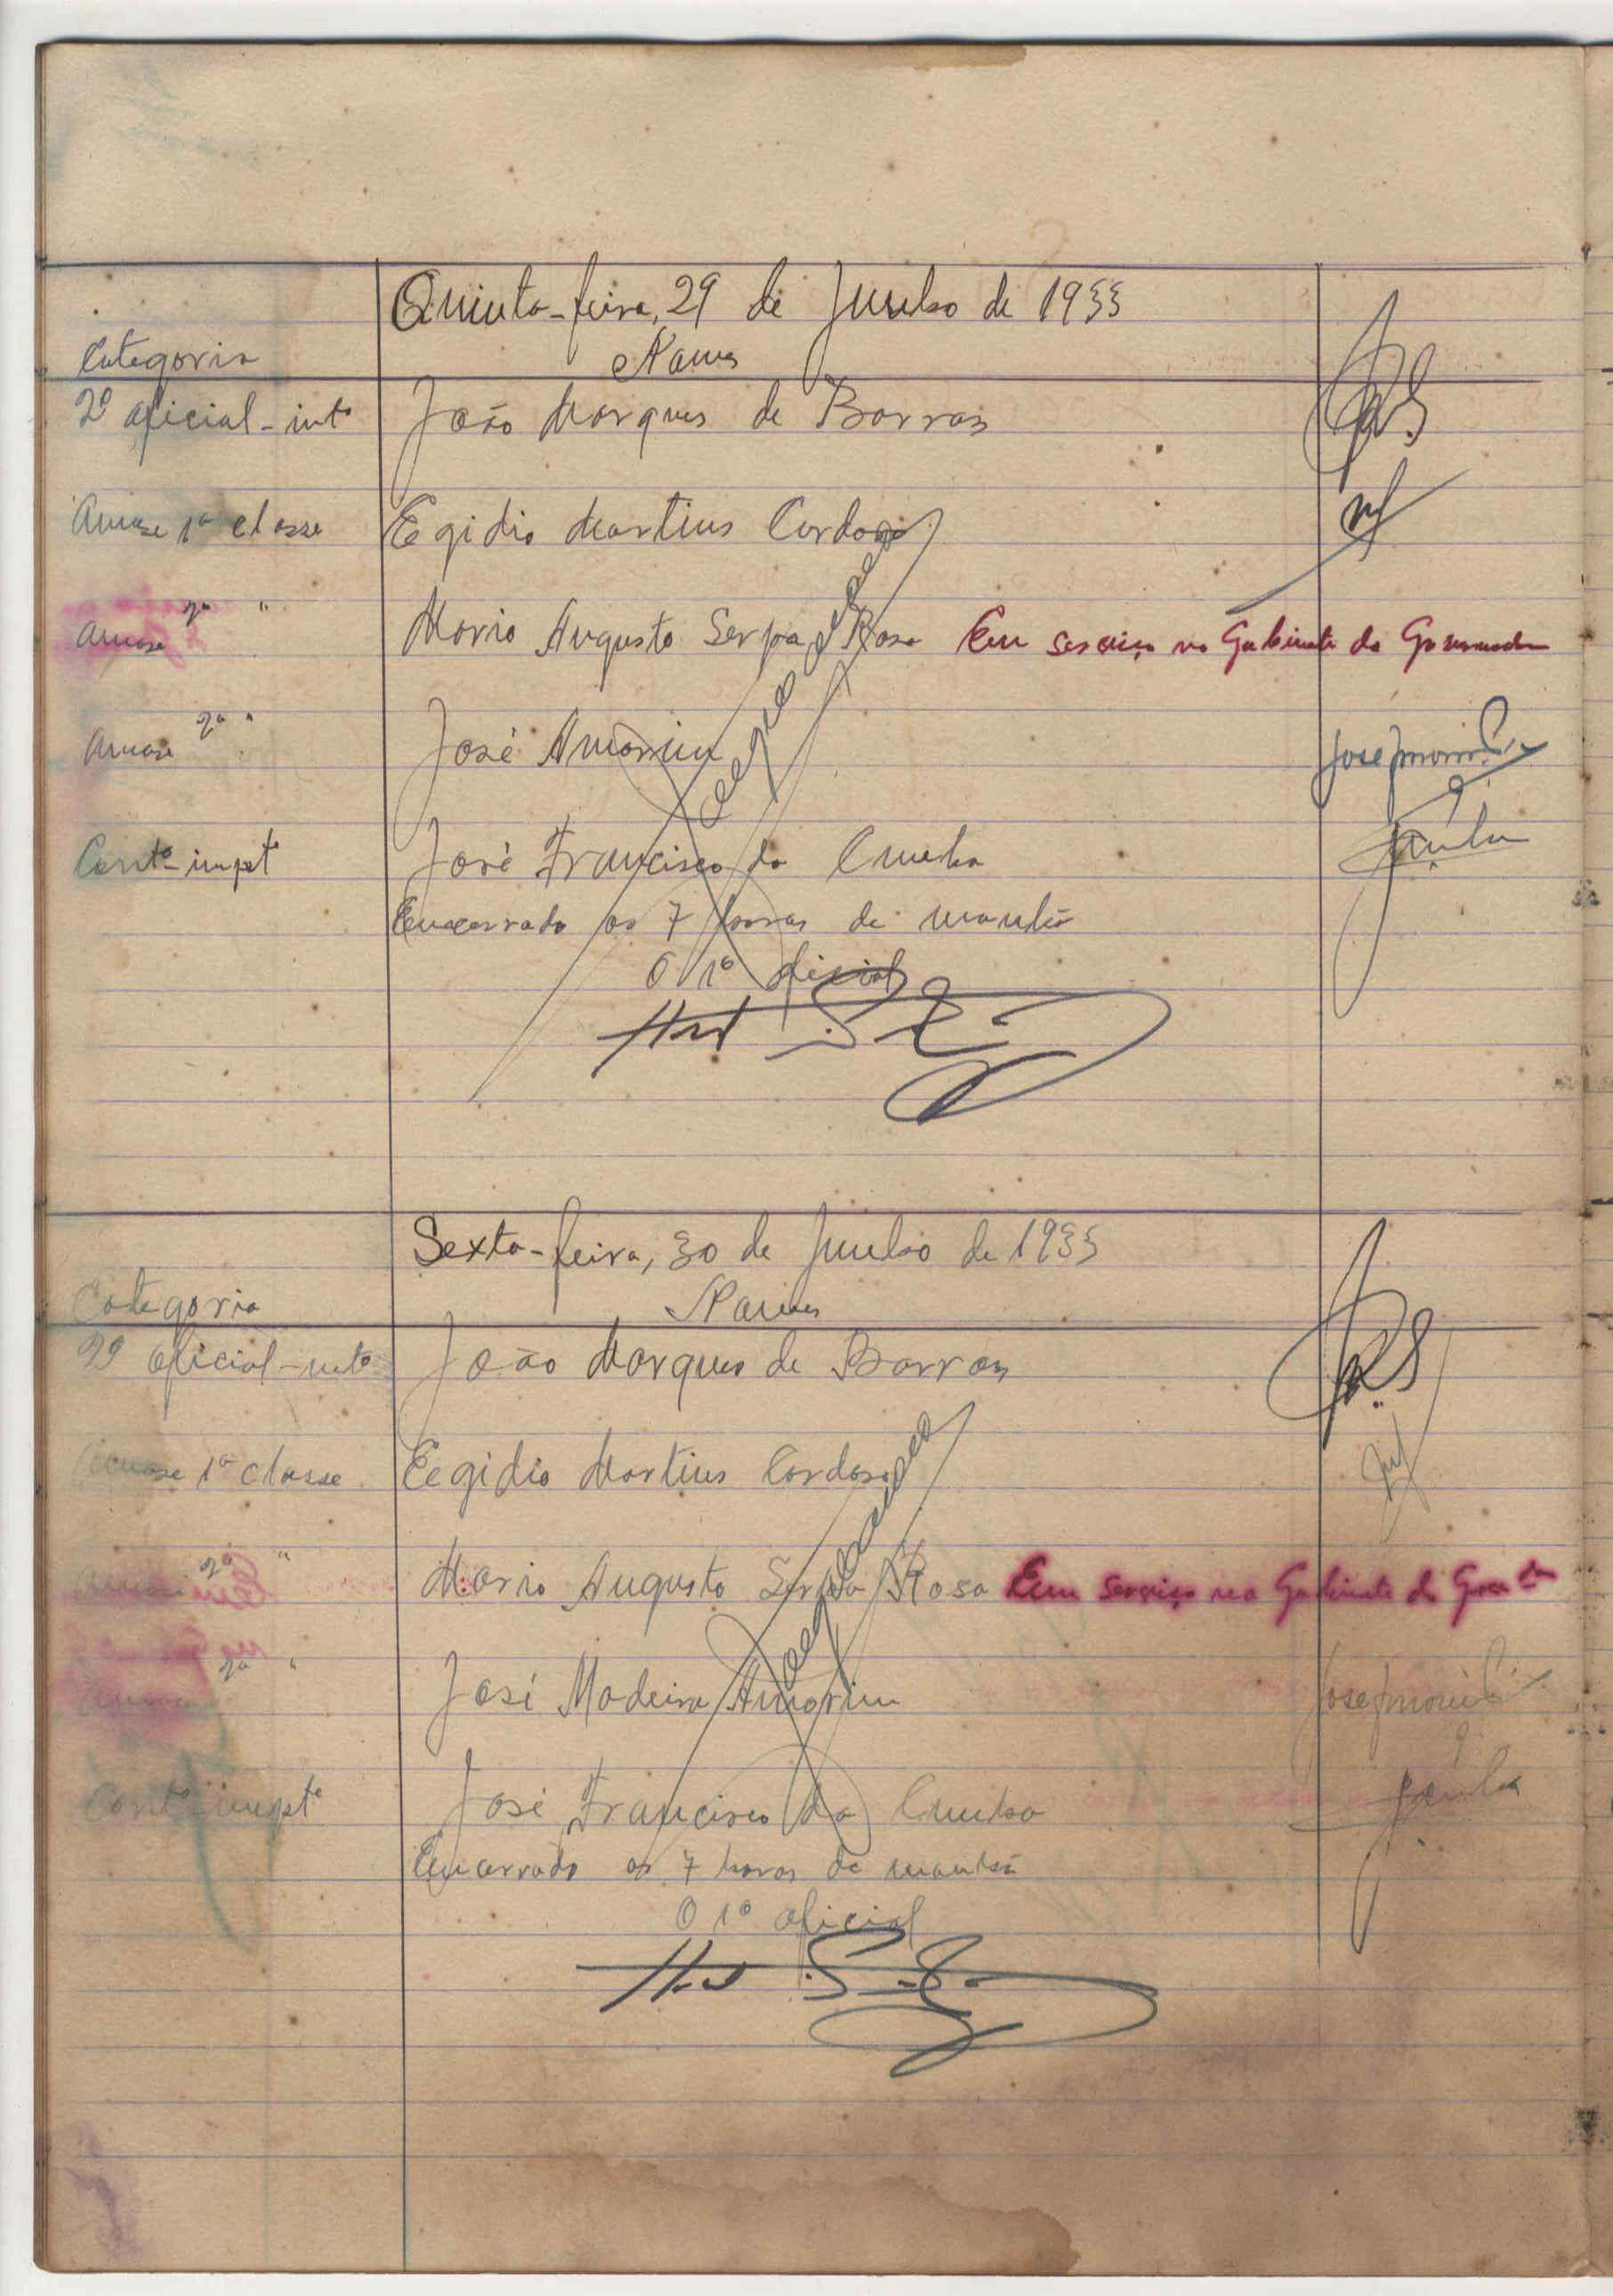 Quinta-feira, 29 de Junho de 1933
Categoria Nomes
2º oficial-intº João Marques de Barros
Amase 1ª classe Egidio Martins Cardoso
Amase 2ª " Mario Augusto Serpa Rosa Em serviço no Gabinete do Governador
Amase 2ª " José Amorim
Contº-impetº José Francisco da Cunha
Encerrado as 7 horas de manhã
O 1º oficial
Sexta-feira, 30 de Junho de 1933
Categoria Nomes
2º oficial-intº João Marques de Barros
Amase 1ª classe Egidio Martins Cardoso
2ª " Mario Augusto Serpa Rosa Em serviço no Gabinete do
2ª " José Madeira Amorim
Contº-impetº José Francisco da Cunha
Encerrado as 7 horas de manhã
O 1º oficial